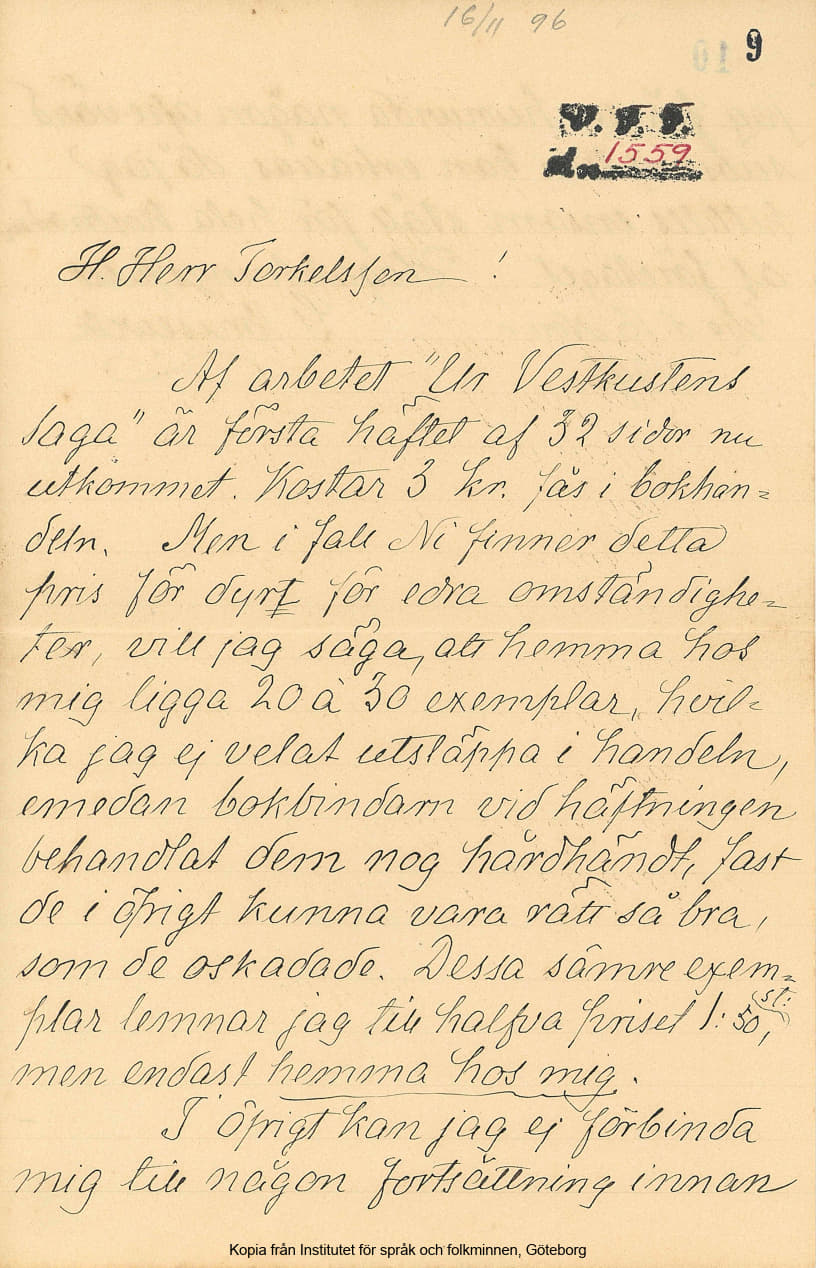 16/11 96
9
V. F. F.
d. n. 1559
H. Herr Torkelsson !
Af arbetet "Ur Vestkustens
saga" är första häftet af 32 sidor nu
utkommet. Kostar 3 kr. fås i bokhan=
deln. Men i fall Ni finner detta
pris för dyrt för edra omständighe=
ter, vill jag säga, att hemma hos
mig ligga 20 à 30 exemplar, hvil=
ka jag ej velat utsläppa i handeln,
emedan bokbindarn vid häftningen
behandlat dem nog hårdhändt, fast
de i öfrigt kunna vara rätt så bra,
som de oskadade. Dessa sämre exem=
plar lemnar jag till halfva priset 1:50, st:
men endast hemma hos mig.
I öfrigt kan jag ej förbinda
mig till någon fortsättning innan
Kopia från Institutet för språk och folkminnen, Göteborg